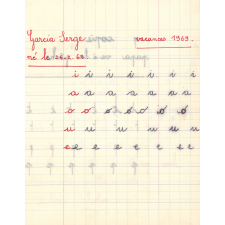 Garcia Serge vacances 1969.
né le 26.2.63
i i i i i i i
a a a a a a a
o o o o o o o
u u u u u u u
e e e e e e e